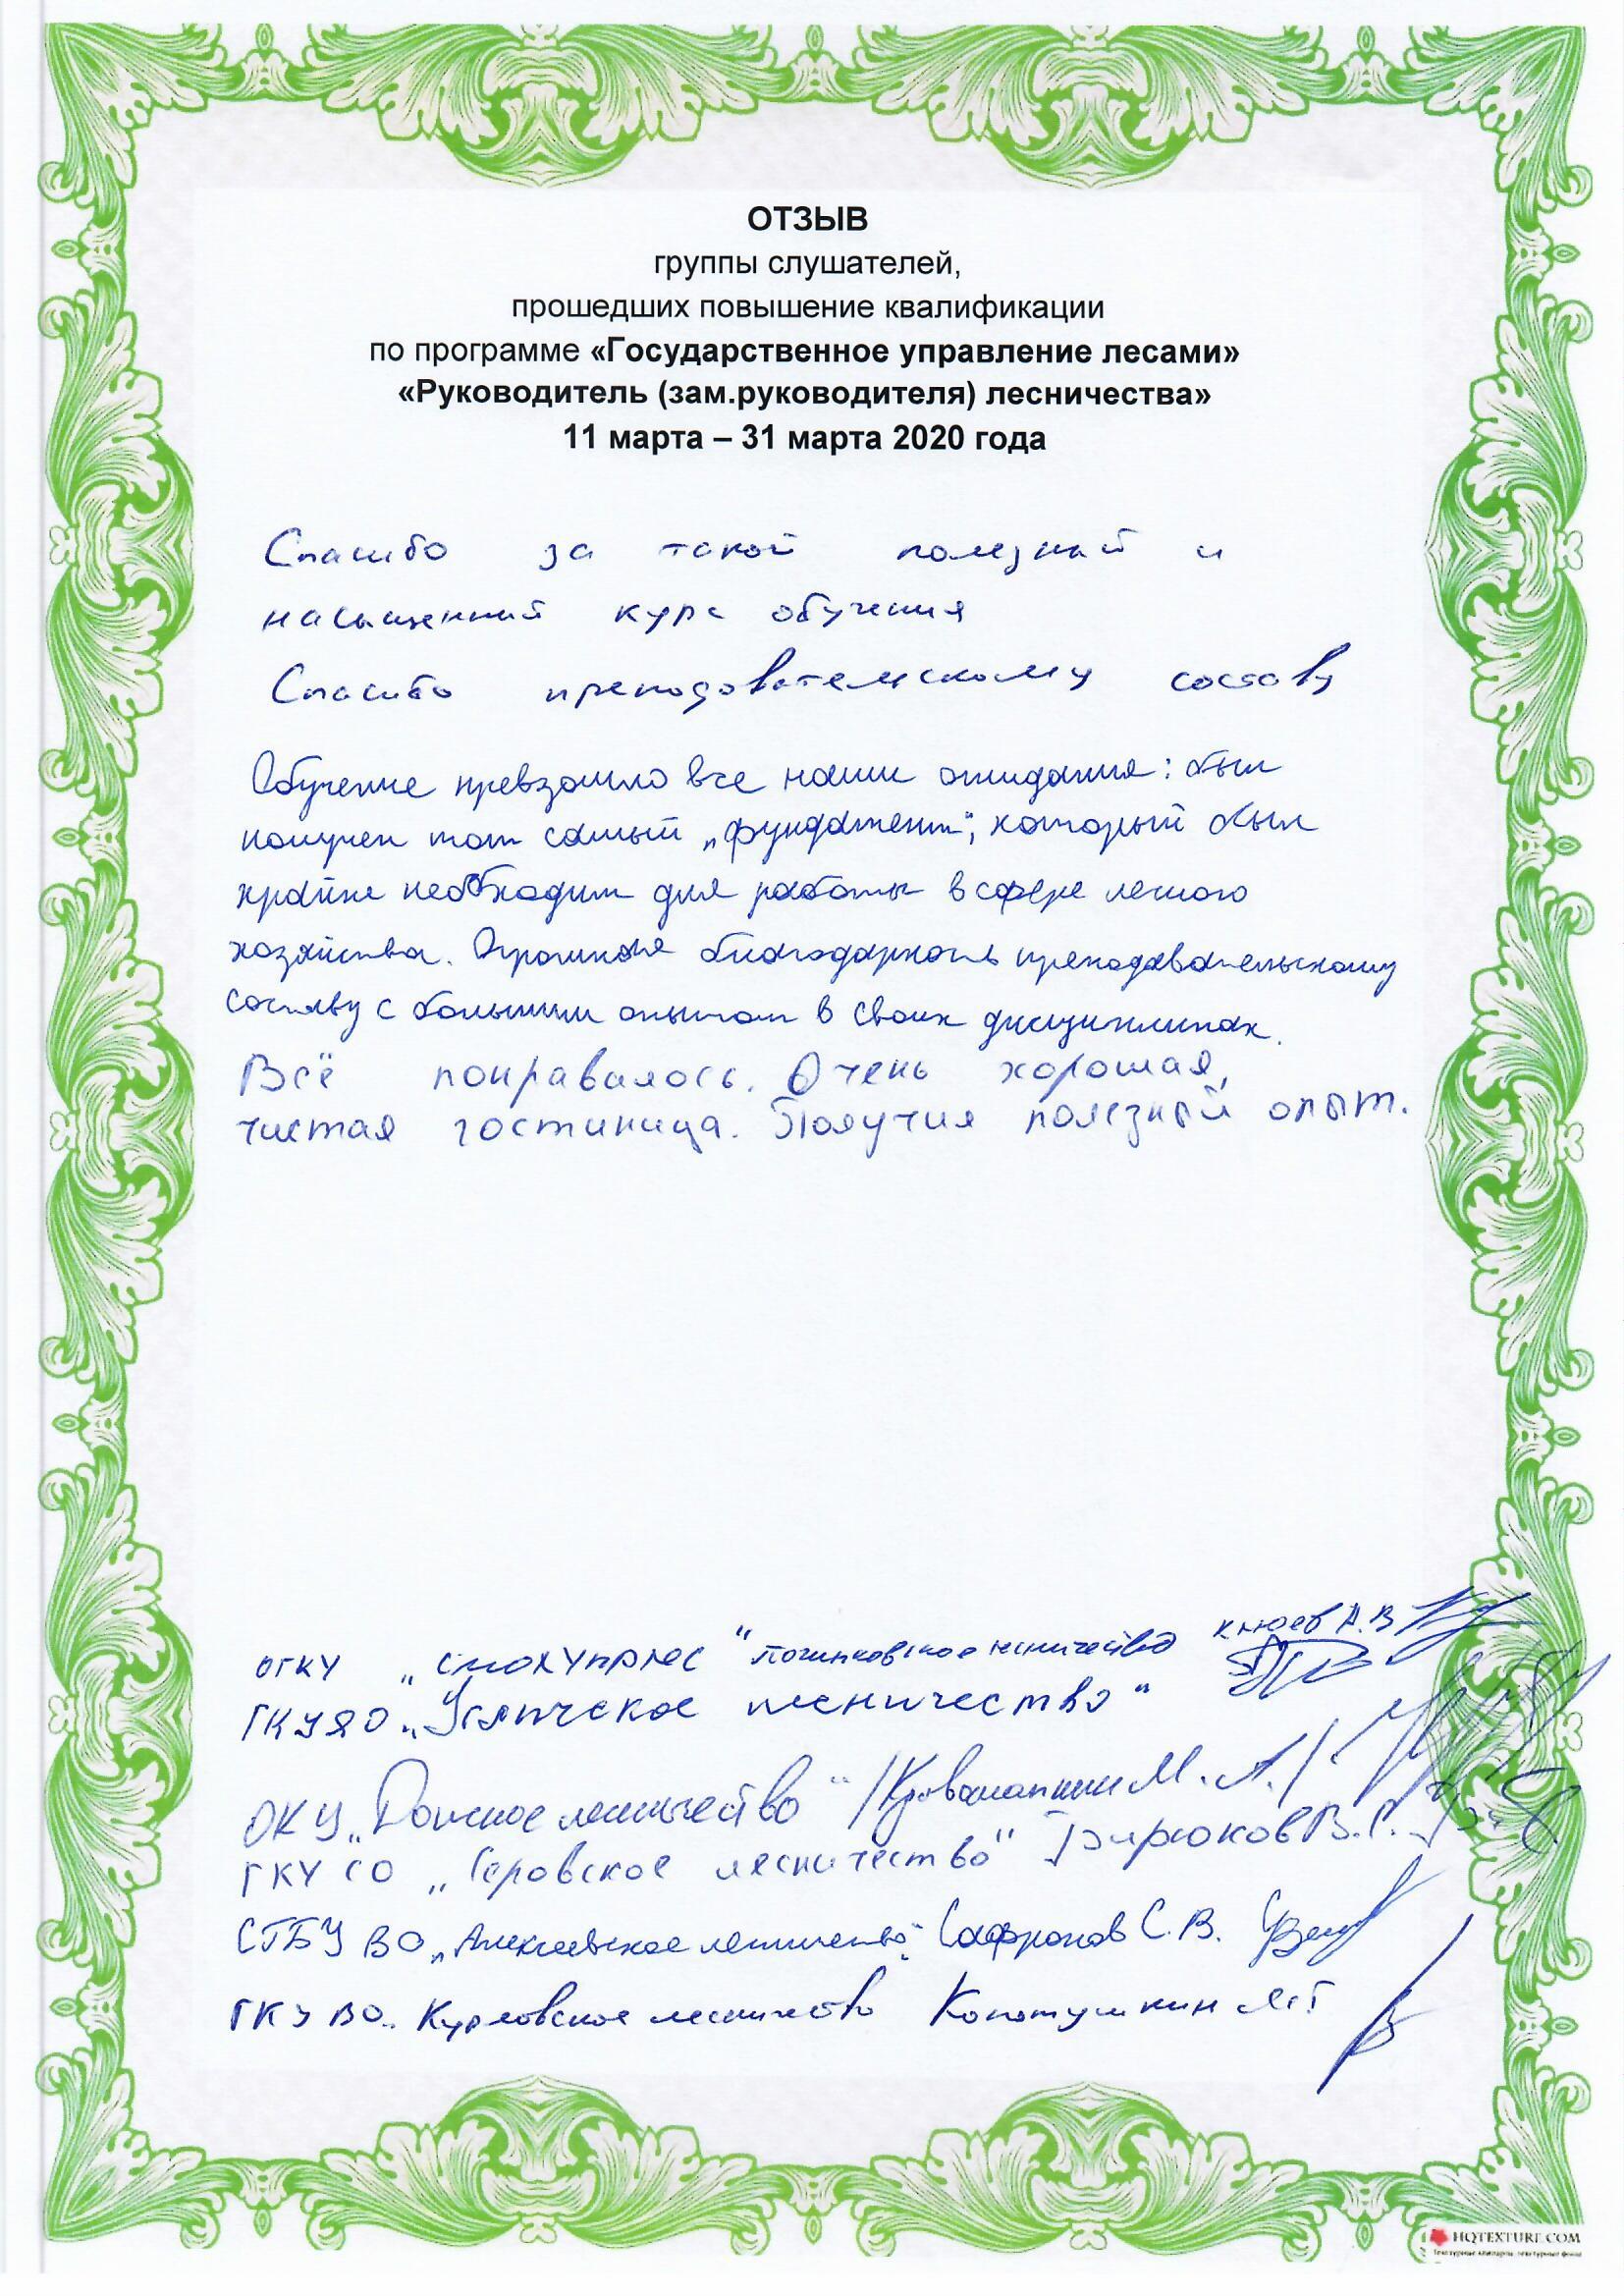 ОТЗЫВ
группы слушателей,
прошедших повышение квалификации
по программе «Государственное управление лесами»
«Руководитель (зам.руководителя) лесничества»
11 марта – 31 марта 2020 года
Спасибо за такой полезный и
насыщенный курс обучения
Спасибо преподовательскому составу
Обучение превзошло все наши ожидания: был
получен тот самый „фундамент“, который был
крайне необходим для работы в сфере лесного
хозяйства. Огромная благодарность преподавательскому
составу с большим опытом в своих дисциплинах.
Всё понравалось. Очень хорошая,
чистая гостиница. Получил полезный опыт.
ОГКУ „Смолупрлес" Починковское лесничество Клюев А.В
ГКУ ЯО „Угличское лесничество"
ОКУ „Донское лесничество" / М. А./
ГКУ СО „Серовское лесничество" Бирюков В.С.
СГБУ ВО „Алексеевское лесничество" Сафронов С.В.
ГКУ ВО „Курловское лесничество Колотушкин
HQTEXTURE.COM